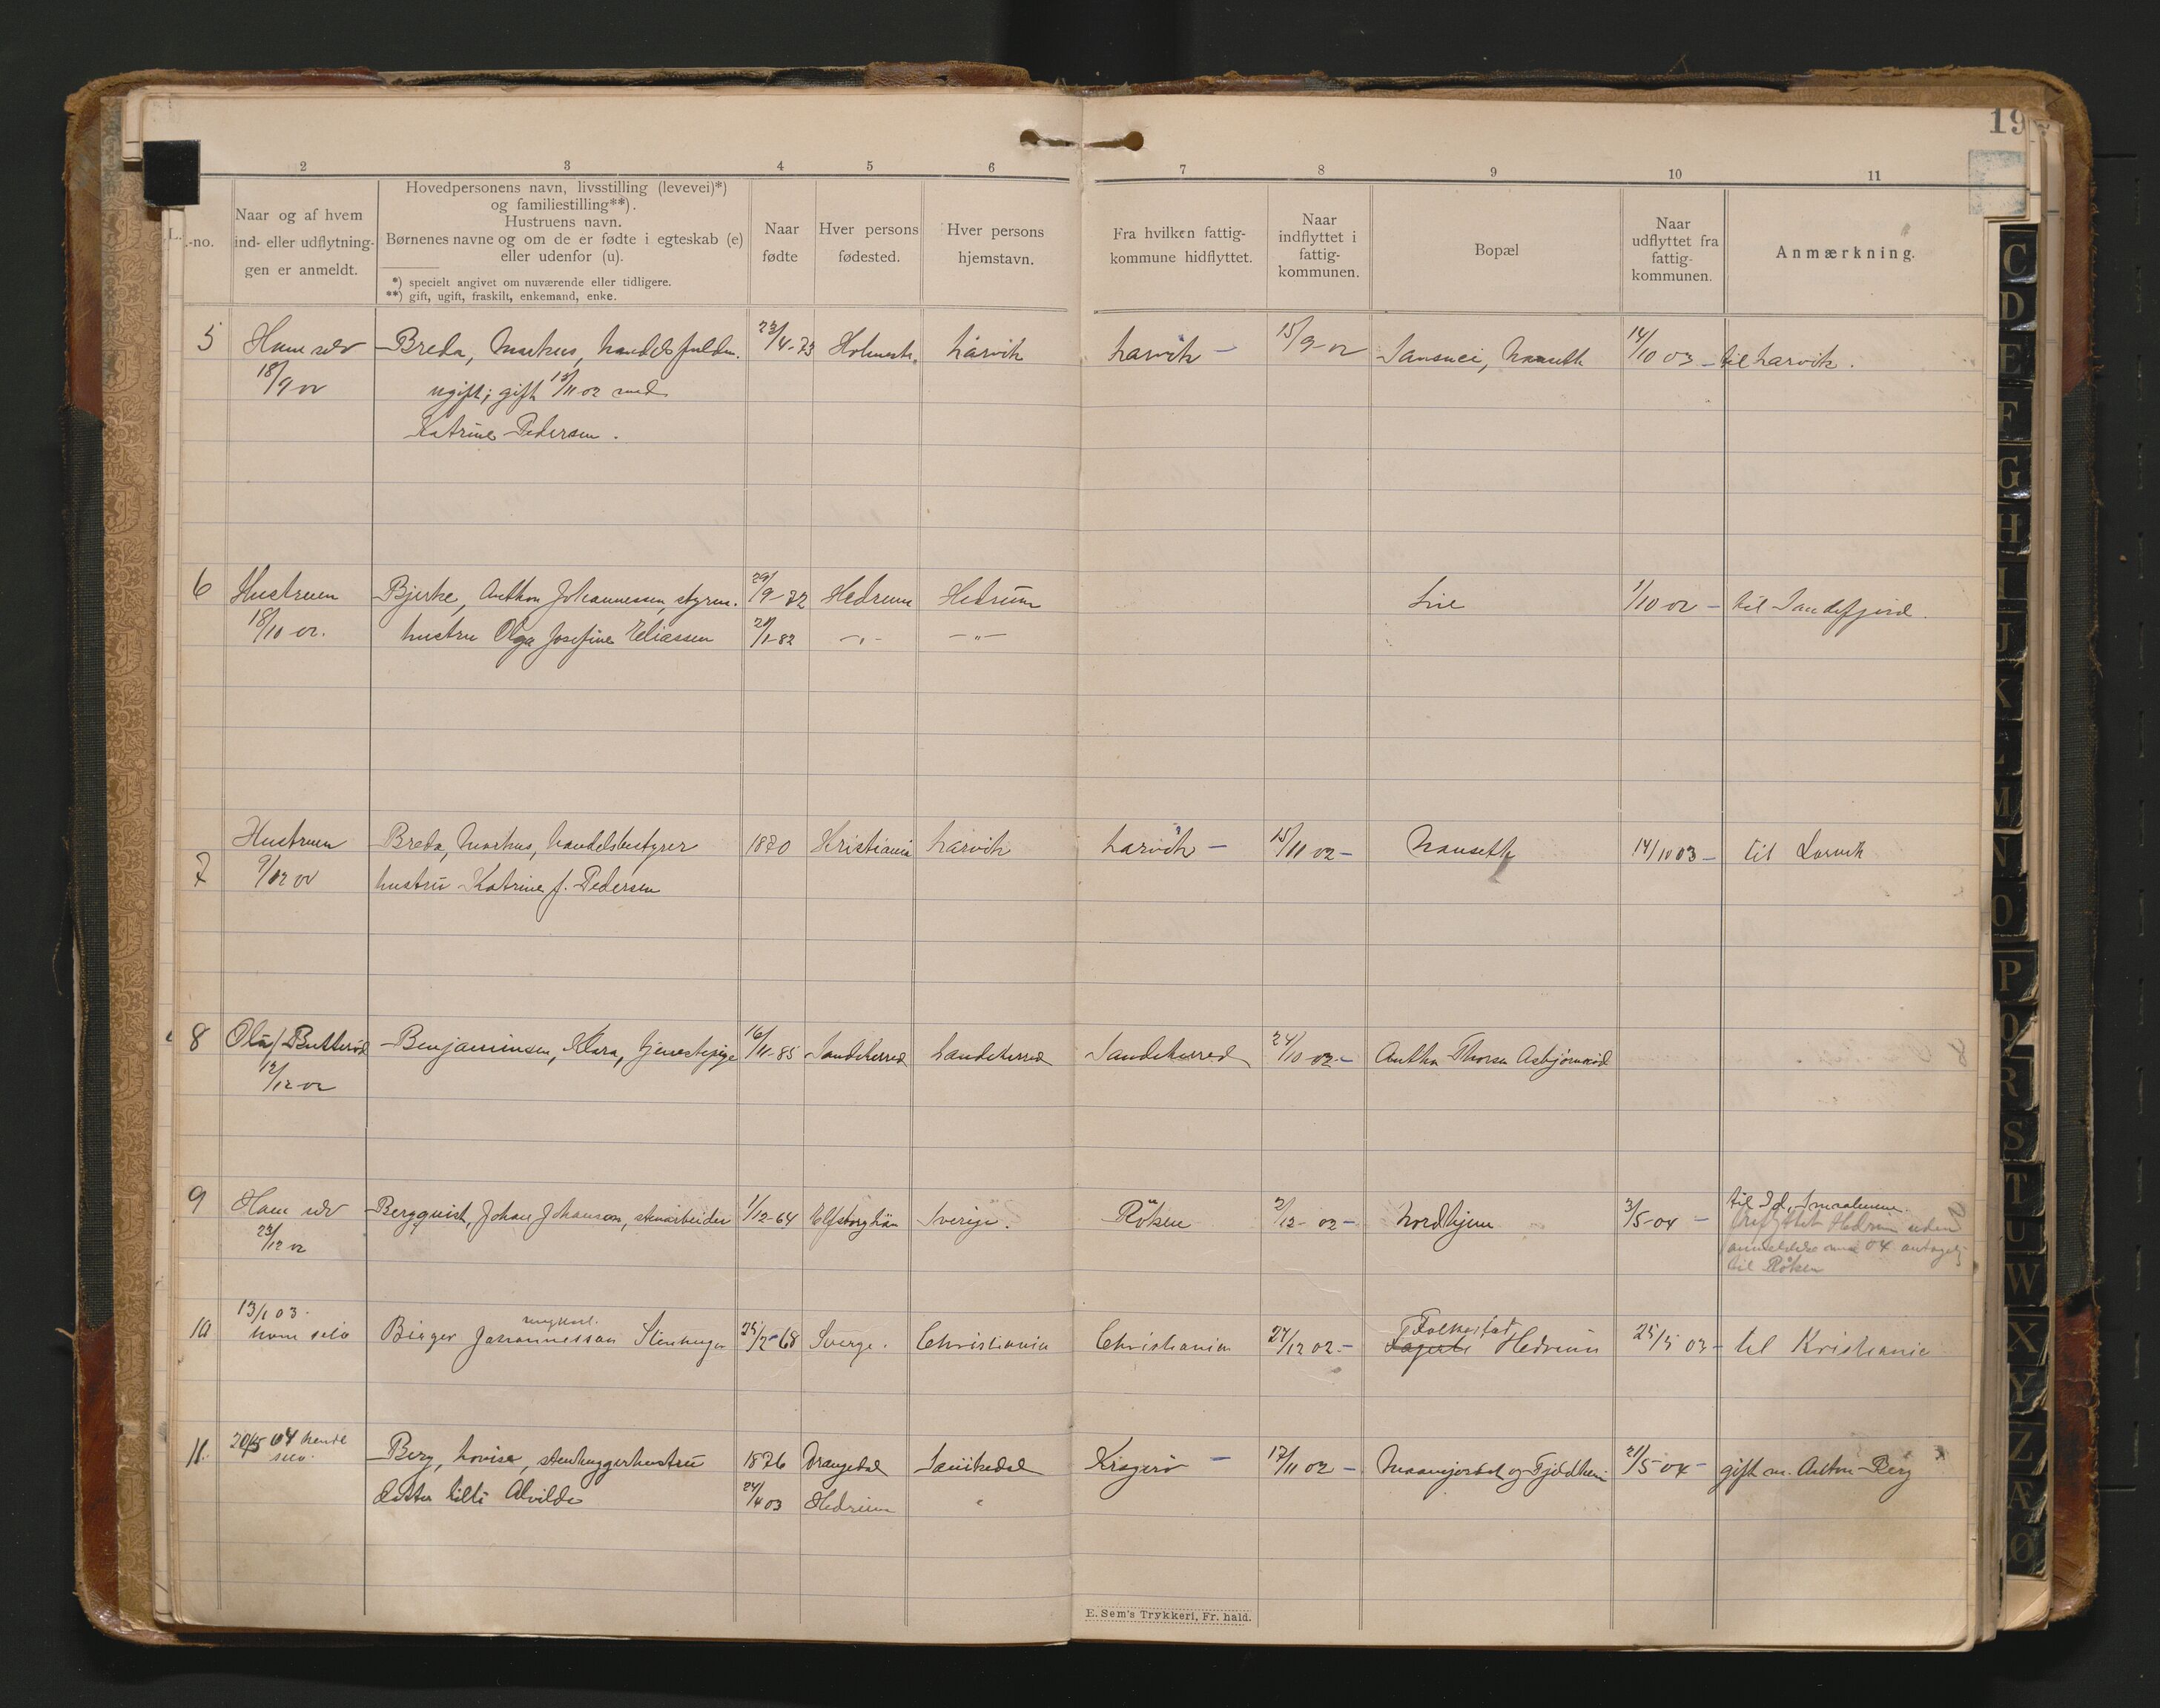 19
2 3 4 5 6 7 8 9 10 11
L. -no.
Naar og af hvem
ind- eller udflytnin-
gen er anmeldt.
Hovedpersonens navn, livsstilling (levevei)*)
og familiestilling**).
Hustruens navn.
Børnenes navne og om de er fødte i egteskab (e)
eller udenfor (u).
*) specielt angivet om nuværende eller tidligere.
**) gift, ugift, fraskilt, enkemand, enke.
Naar
fødte
Hver persons
fødested.
Hver persons
hjemstavn.
Fra hvilken fattig-
kommune hidflyttet.
Naar
indflyttet i
fattig-
kommunen.
Bopæl
Naar
udflyttet fra
fattig-
kommunen.
Anmærkning.
5 Ham selv Breda, Markus, handelsfuldm. 23/4-73 Holmestr. Larvik Larvik – 15/9-02 Sansuci, Nanseth 14/10 03 – til Larvik.
18/9 02 ugift; gift 15/11 02 med
Katrine Pedersen.
6 Hustruen Bjerke, Anthon Johannessen, styrm. 29/9-72 Hedrum Hedrum Lie 1/10 02 – til Sandefjord.
18/10 02. hustru Olga Josefine Eliassen 21/1-82 -"- -"-
Hustruen Breda, Markus, handelsbestyrer 1870 Kristiania Larvik Larvik – 15/11 02 – Nanseth 14/10 03 – til Larvik
7 9/12 02 hustru Katrine f. Pedersen
8 Ola Butterød Benjaminsen, Klara, tjenestepige 16/11-85 Sandeherred Sandeherred Sandeherred 24/10 02 – Anthon Thorsen Asbjørnrød
12/12 02
9 Ham selv Bergquist, Johan Johansson, stenarbeider 1/12-64 Elfsborg län Sverige. Röken 2/12-02 – Nordhjem 3/5-04 – til Id, Smaalenene.
23/12 02 Hedrum uden
04 antagelig
til Röken
13/1 03.
10 ham selv Birger Johannesson Stenhugger 25/2-68 Sverge. Christiania Christiania 27/12 02 – Hedrum 25/5 03 – til Kristiania
Folkestad
11. 20/5 04 hende Berg, Lovise, stenhuggerhustru 1876 Drangedal Sanikedal Kragerø – 17/11 02 – og Fjeldheim 21/5-04 – gift m. Anton Berg
selv. datter Lilli Alvilde 24/4 03 Hedrum "
E. Sem's Trykkeri, Fr. hald.
C
D
E
F
G
H
I
J
K
M
N
O
P
Q
R
S
T
U
W
X
Y
Z
Æ
Ø